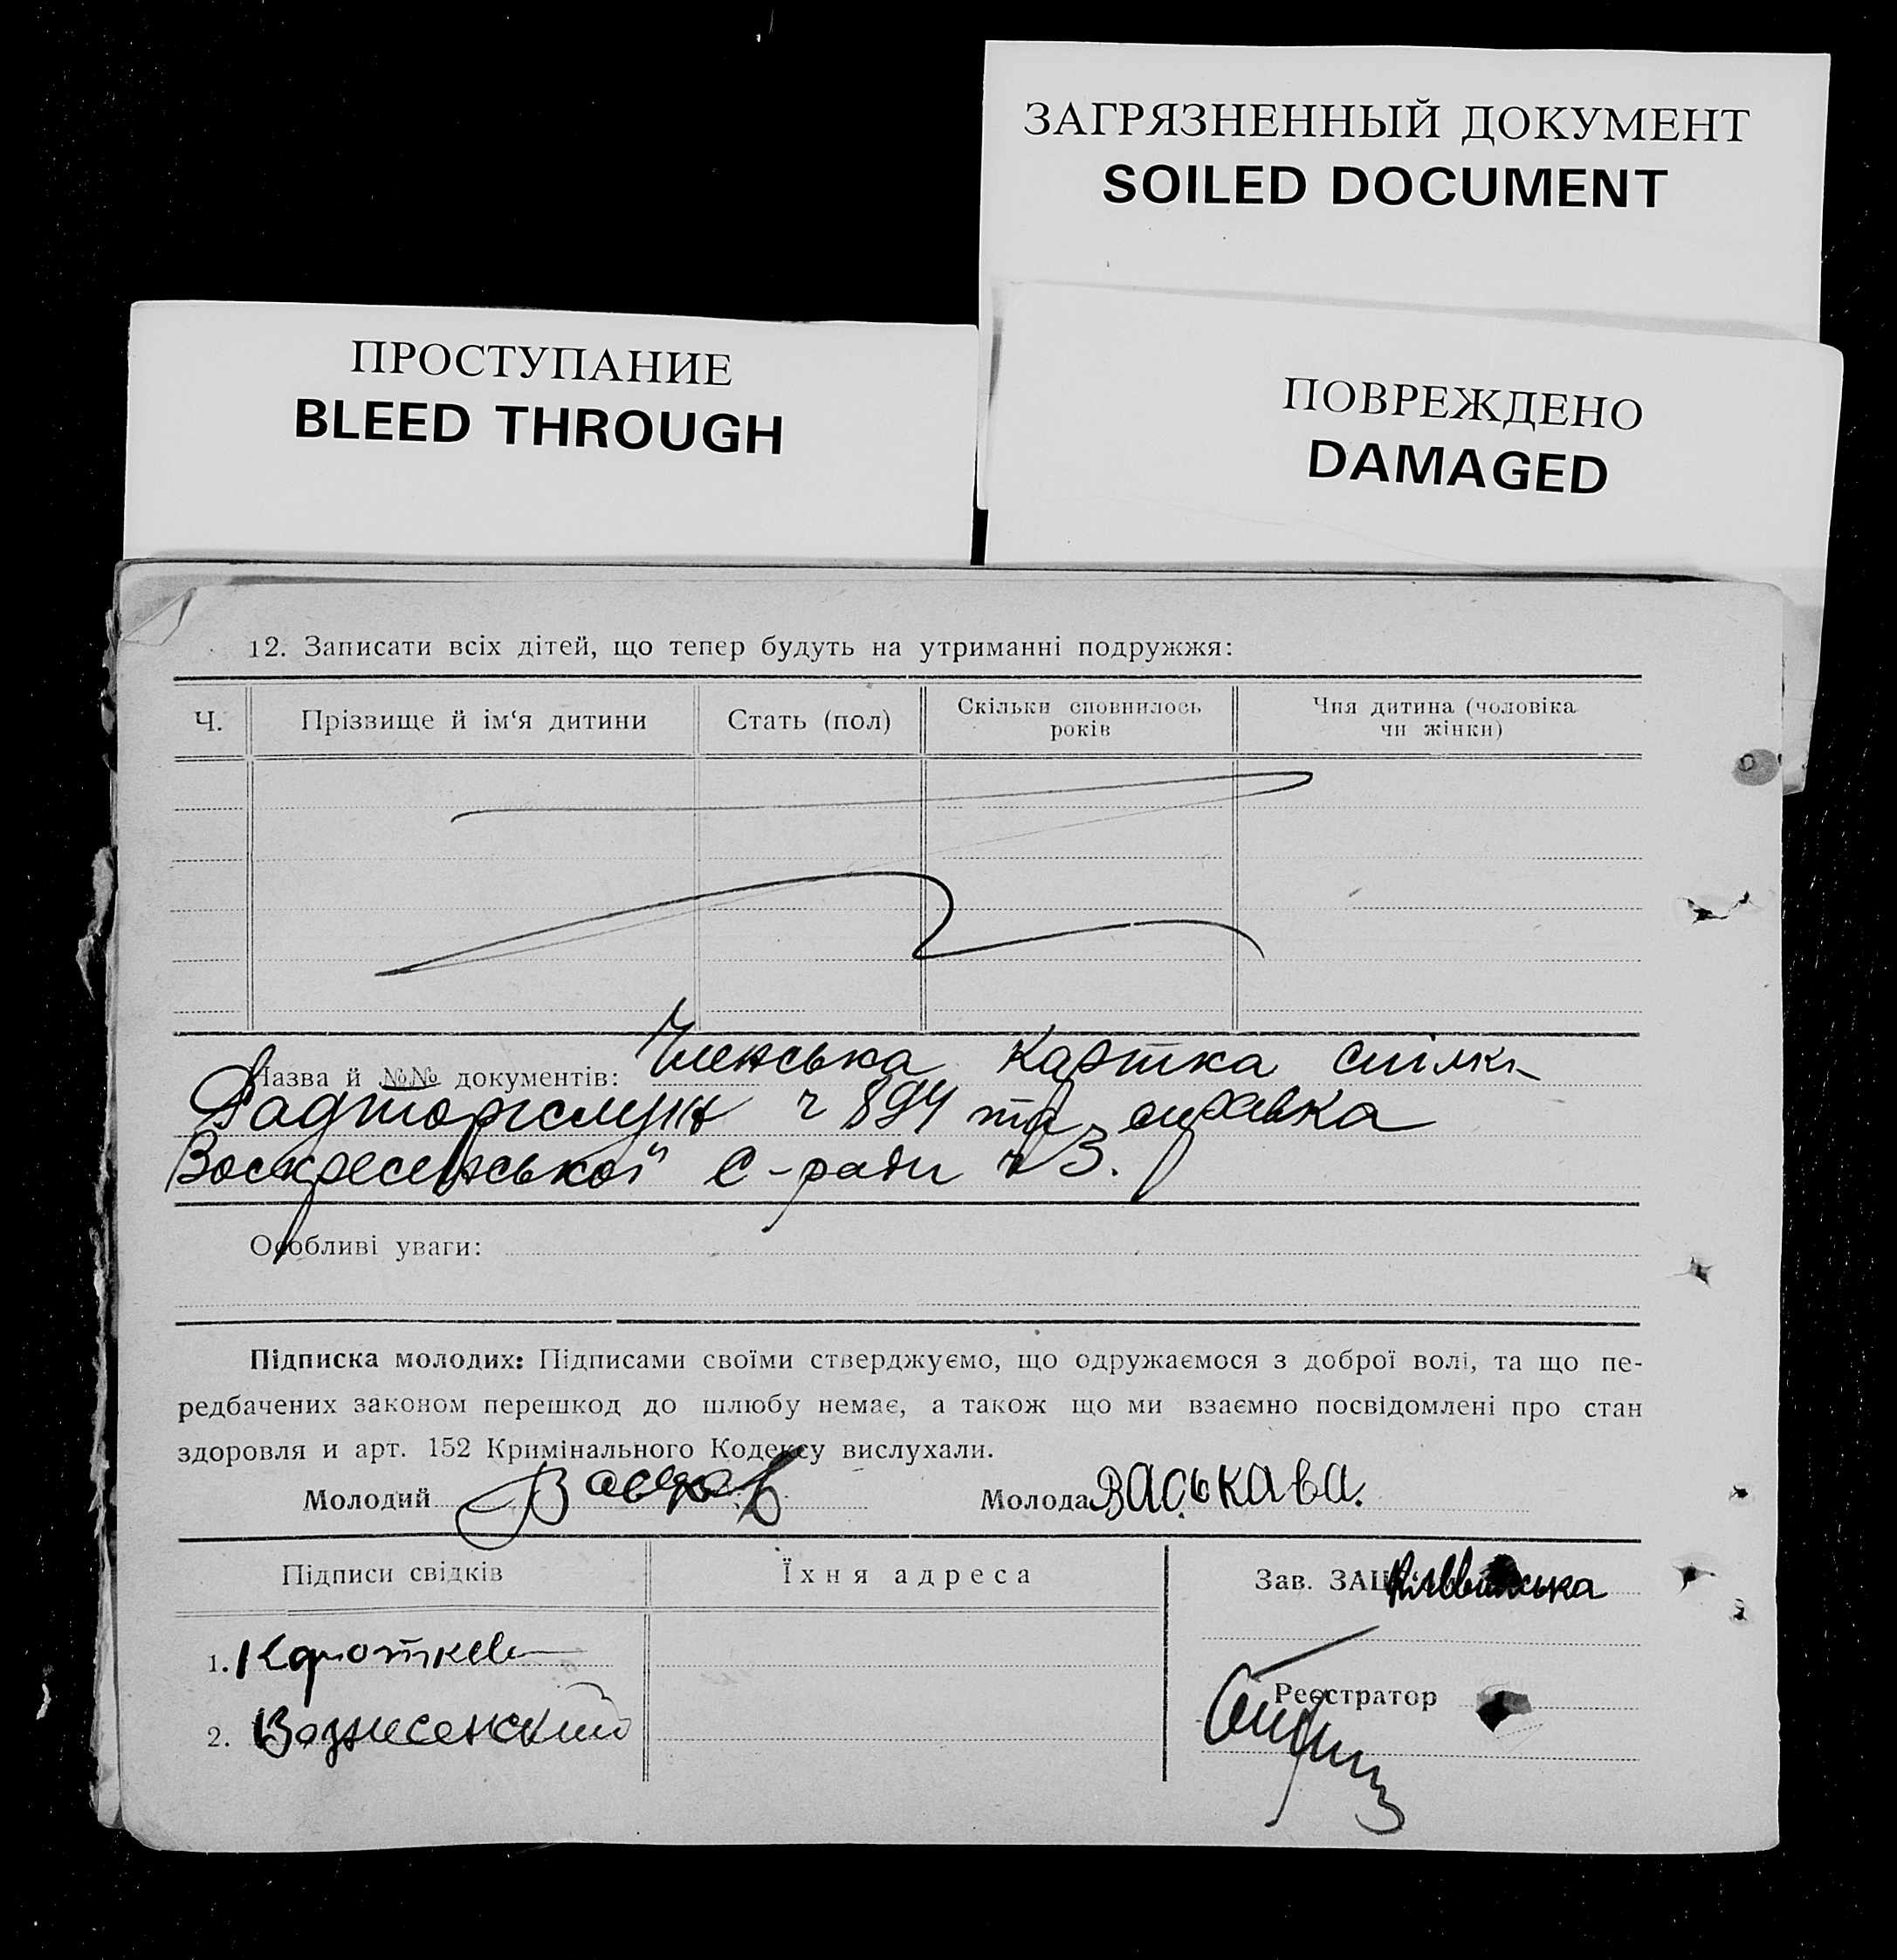 ЗАГРЯЗНЕННЫЙ ДОКУМЕНТ
SOILED DOCUMENT
ПРОСТУПАНИЕ
BLEED THROUGH
ПОВРЕЖДЕНО
DAMAGED
12. Записати всіх дітей, що тепер будуть на утриманні подружжя:
Ч.
Прізвище й ім‘я дитини
Стать (пол)
Скільки сповнилось
років
Чия дитина (чоловіка
чи жінки)
Назва й №№ документів: Членська картка спілки
Радторгслуж ч 894 та справка
Воскресенської С-ради ч 3.
Особливі уваги:
Підписка молодих: Підписами своїми стверджуємо, що одружаємося з доброї волі, та що пе-
редбачених законом перешкод до шлюбу немає, а також що ми взаємно посвідомлені про стан
здоровля и арт. 152 Кримінального Кодексу вислухали.
Молодий
Молода Васькава.
Підписи свідків
Їхня адреса
Зав. ЗАЦС
1.
2. Вознесенский
Реєстратор